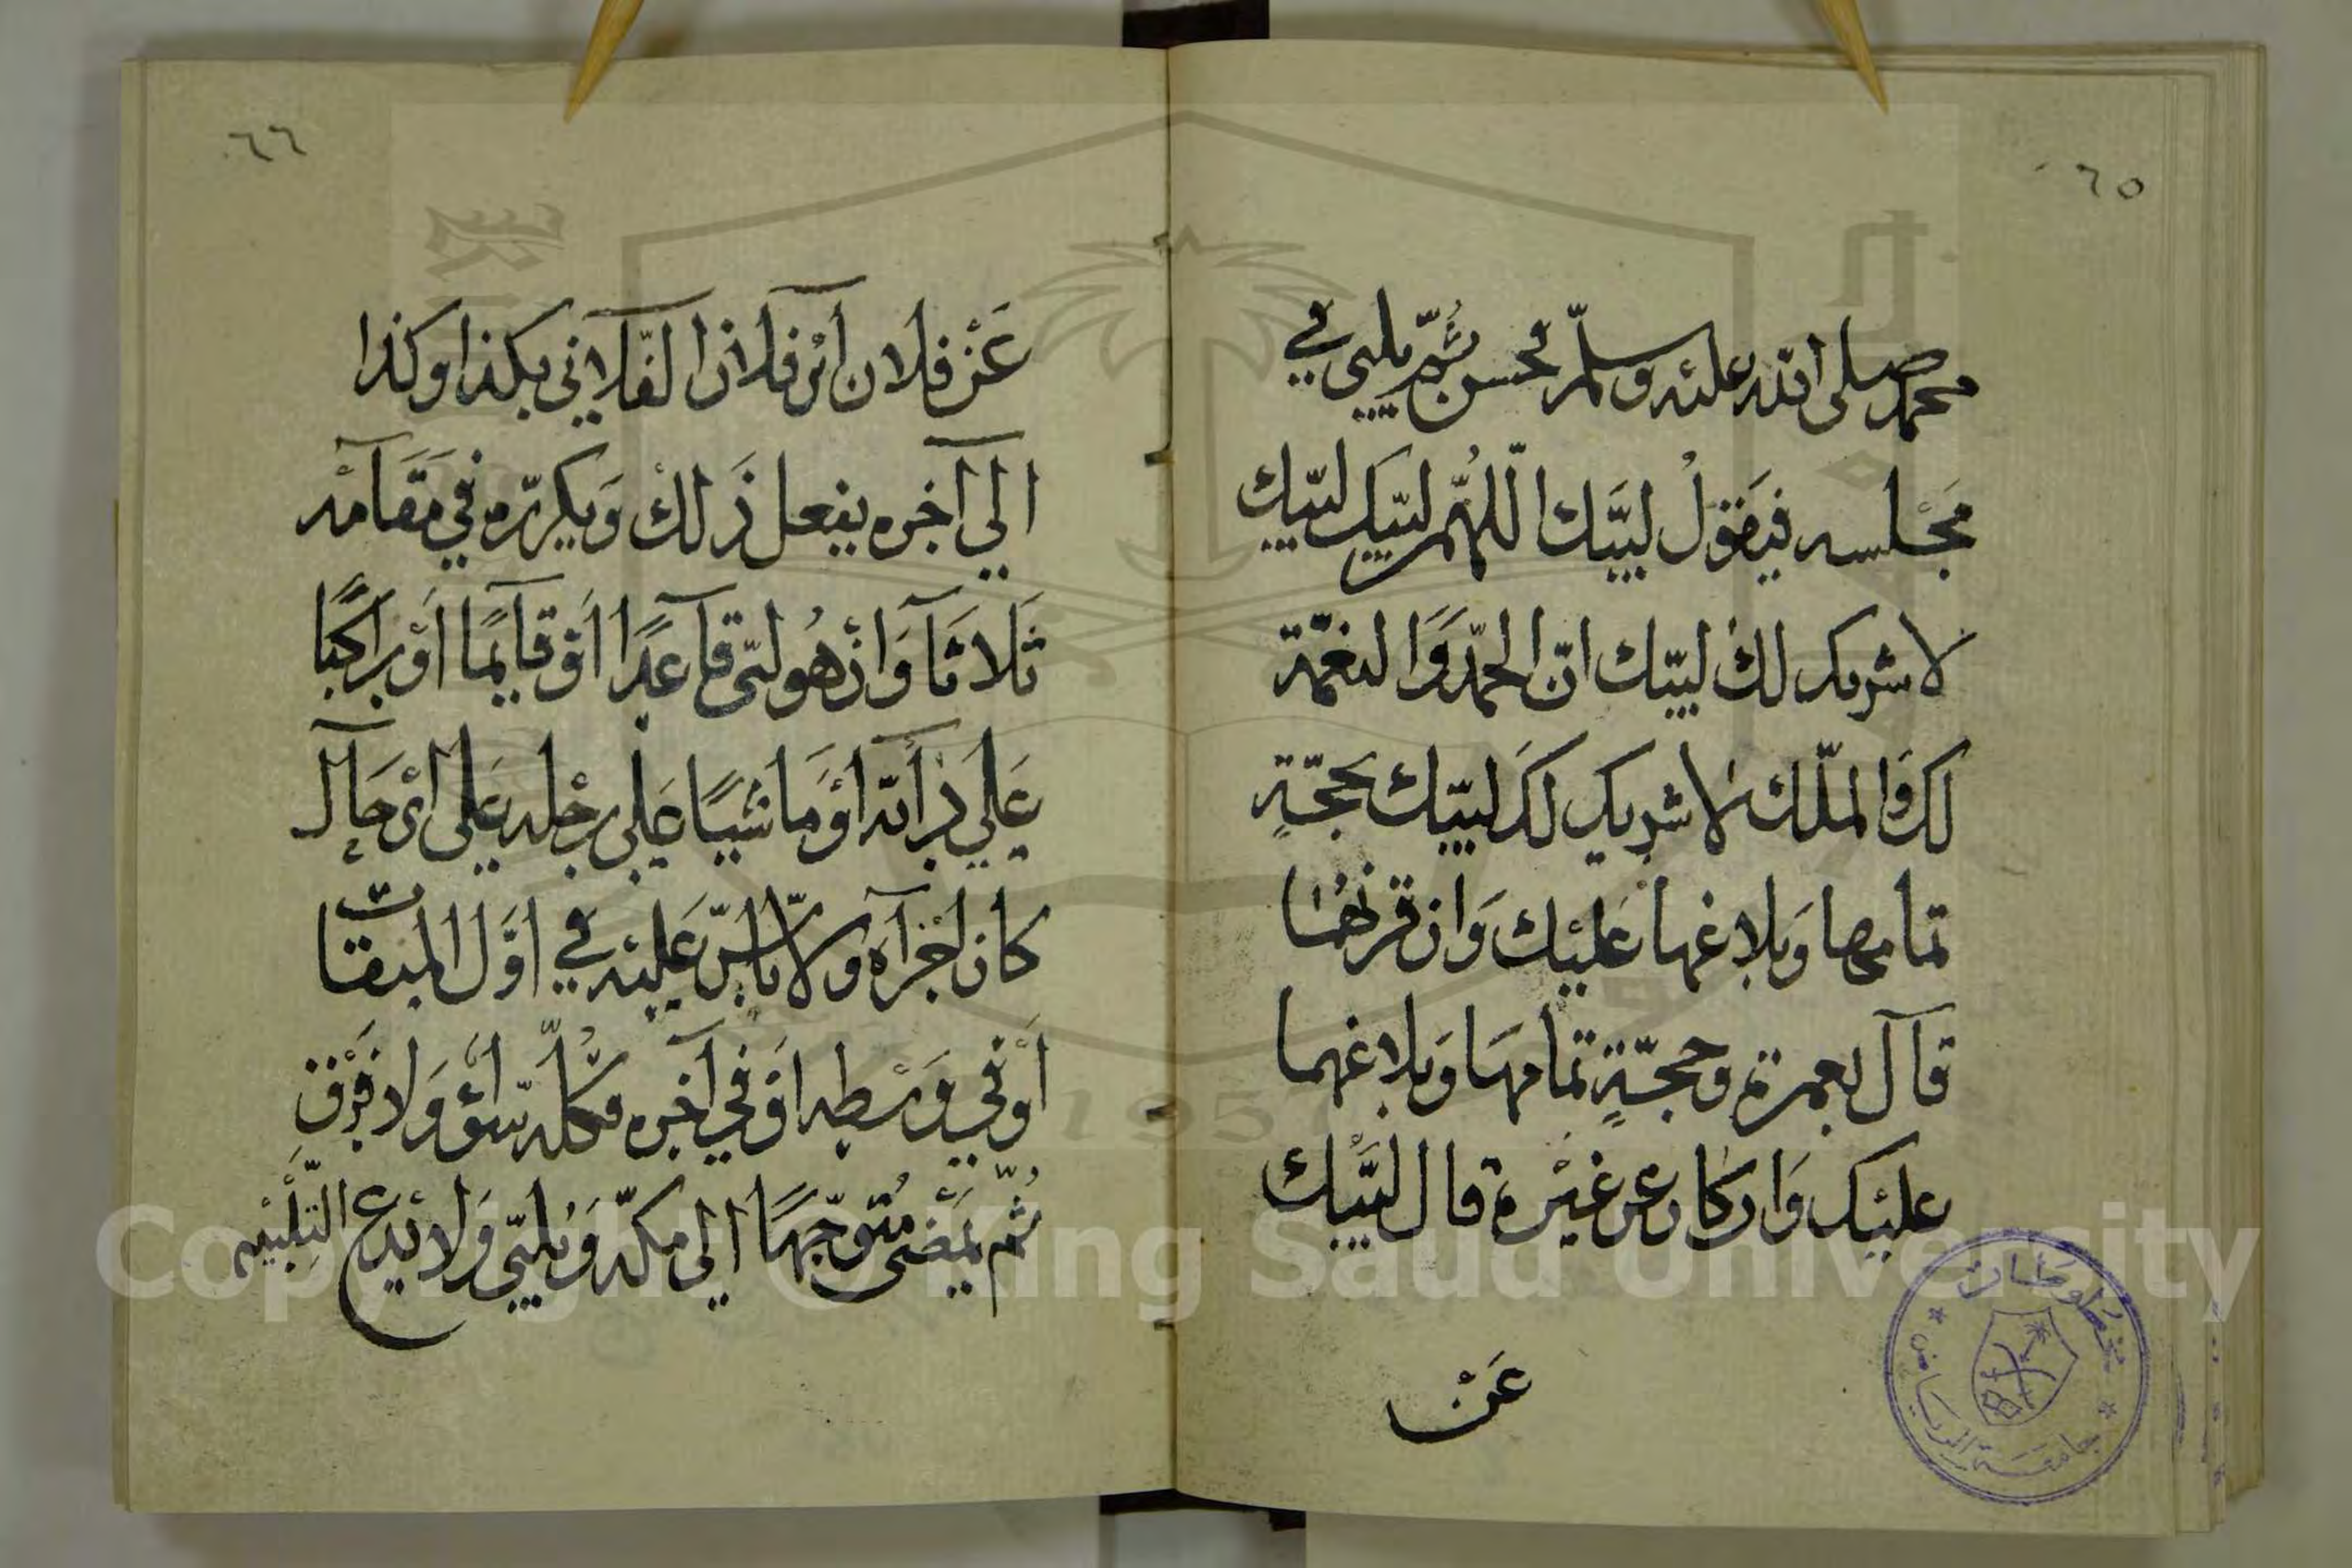 ٦٥
محمد صلى الله عليه وسلم فحسن ثم يلبي في
مجلسه فيقول لبيك اللهم لبيك لبيك
لا شريك لك لبيك ان الحمد والنعمة
لك والملك لا شريك لك لبيك بحجة
تمامها وبلاغها عليك وان قرنهما
قال بعمرة وحجة تمامها وبلاغهما
عليك وان كان عن غيره قال لبيك
عن
٦٦
عن فلان ابن فلان الفلاني بكذا وكذا
الي آخره يفعل ذلك ويكرره في مقامه
ثلاثا وان هو لبى قاعدا او قايما او راكبا
علي دابته او ماشيا علي رجليه على اي حال
كان اجزآه ولا باس عليه في اول الميقات
او في وسطه او في آخره فكله سوآء ولا فرق
ثم يمضى متوجها الى مكة ويلبي ولا يدع التلبيه
مخطوطات
جامعة الرياض
1957
Copyright © King Saud University